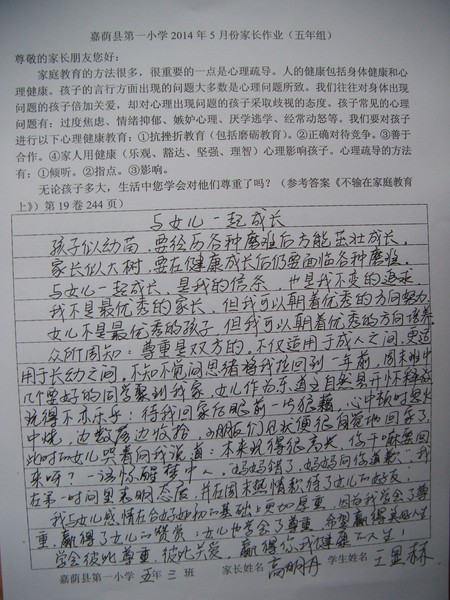 嘉荫县第一小学 2014 年 5 月份家长作业（五年组）
尊敬的家长朋友您好：
家庭教育的方法很多，很重要的一点是心理疏导。人的健康包括身体健康和心
理健康。孩子的言行方面出现的问题大多数是心理问题所致。我们往往对身体出现
问题的孩子倍加关爱，却对心理出现问题的孩子采取歧视的态度。孩子常见的心理
问题有：过度焦虑、情绪抑郁、嫉妒心理、厌学逃学、经常动怒等。我们要对孩子
进行以下心理健康教育：①抗挫折教育（包括磨砺教育）。②正确对待竞争。③善于
合作。④家人用健康（乐观、豁达、坚强、理智）心理影响孩子。心理疏导的方法
有：①倾听。②指点。③影响。
无论孩子多大，生活中您学会对他们尊重了吗？（参考答案《不输在家庭教育
上》）第 19 卷 244 页）
与女儿一起成长
孩子似幼苗，要经历各种磨难后方能茁壮成长，
家长似大树，要在健康成长后仍要面临各种磨难。
与女儿一起成长，是我的信条，也是我不变的追求
我不是最优秀的家长，但我可以朝着优秀的方向努力
女儿不是最优秀的孩子，但我可以朝着优秀的方向培养
众所周知：尊重是双方的，不仅适用于成人之间，更适
用于长幼之间，不知不觉间思绪将我拉回到一年前，周末班中
几个要好的同学聚到我家，女儿作为东道主自然是开怀释放
玩得不亦乐乎；待我回家后眼前一片狼藉，心中顿时怒火
中烧，边数落边收拾，小朋友们见状便很自觉地回家了
此时的女儿哭着向我说道：本来玩得很高兴，你干嘛要回
来呀？一语惊醒梦中人，妈妈错了，妈妈向你道歉；我
在第一时间里表明态度，并在周末热情款待了女儿的好友；
我与女儿感情在合好如初的基础上更加厚重，因为我学会了尊
重，赢得了女儿的赞赏；女儿也学会了尊重，希望赢得美好人生
学会彼此尊重，彼此关爱，赢得你我健康人生！
嘉荫县第一小学 五年 三 班 家长姓名 高明丹 学生姓名 王显赫